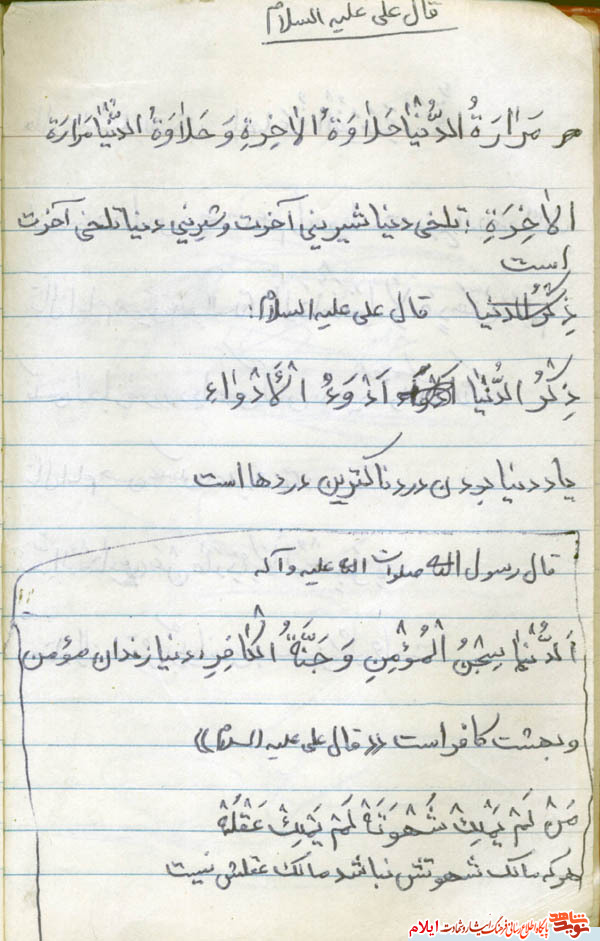 قال علی علیه السلام
مَرارَةُ الدُّنْیا حَلاوَةُ الاٰخِرةِ وَ حَلاوَةُ الدُّنْیا مَرارَة
الاٰخِرَةِ : تلخی دنیا شیرینی آخرت و شیرینی دنیا تلخی آخرت
است
ذِکْرُ الدنیا قال علی علیه السلام :
ذِکْرُ الدُّنْیا اَدْوَءُ الْأَدْواءِ
یاد دنیا بودن دردناکترین دردها است
قال رسول الله صلوات الله علیه و آله
اَلدُّنْیا سِجْنُ الْمُؤْمِنِ وَ جَنَّةُ الْکافِرِ، دنیا زندان مؤمن
و بهشت کافر است «قال علی علیه السلام»
مَنْ لَمْ یَمْلِکْ شَهْوَتَهْ لَمْ یَمْلِکْ عَقْلُهْ
هرکه مالک شهوتش نباشد مالک عقلش نیست
نوید شاهد پایگاه اطلاع رسانی فرهنگ ایثار و شهادت ایلام